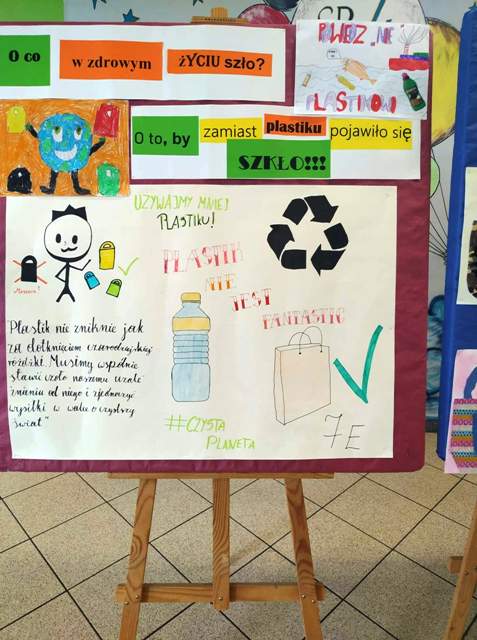 O co w zdrowym ŻYCIU szło?
POWIEDZ „NIE
PLASTIKOWI
O to, by zamiast plastiku pojawiło się
SZKŁO!!!
UŻYWAJMY MNIEJ
PLASTIKU!
PLASTIK
NIE
JEST
FANTASTIC
"Plastik nie zniknie jak
za dotknięciem czarodziejskiej
różdżki. Musimy wspólnie
stawić czoło naszemu uzale-
żnieniu od niego i zjednoczyć
wysiłki w walce o czystszy
świat"
#CZYSTA
PLANETA
7E